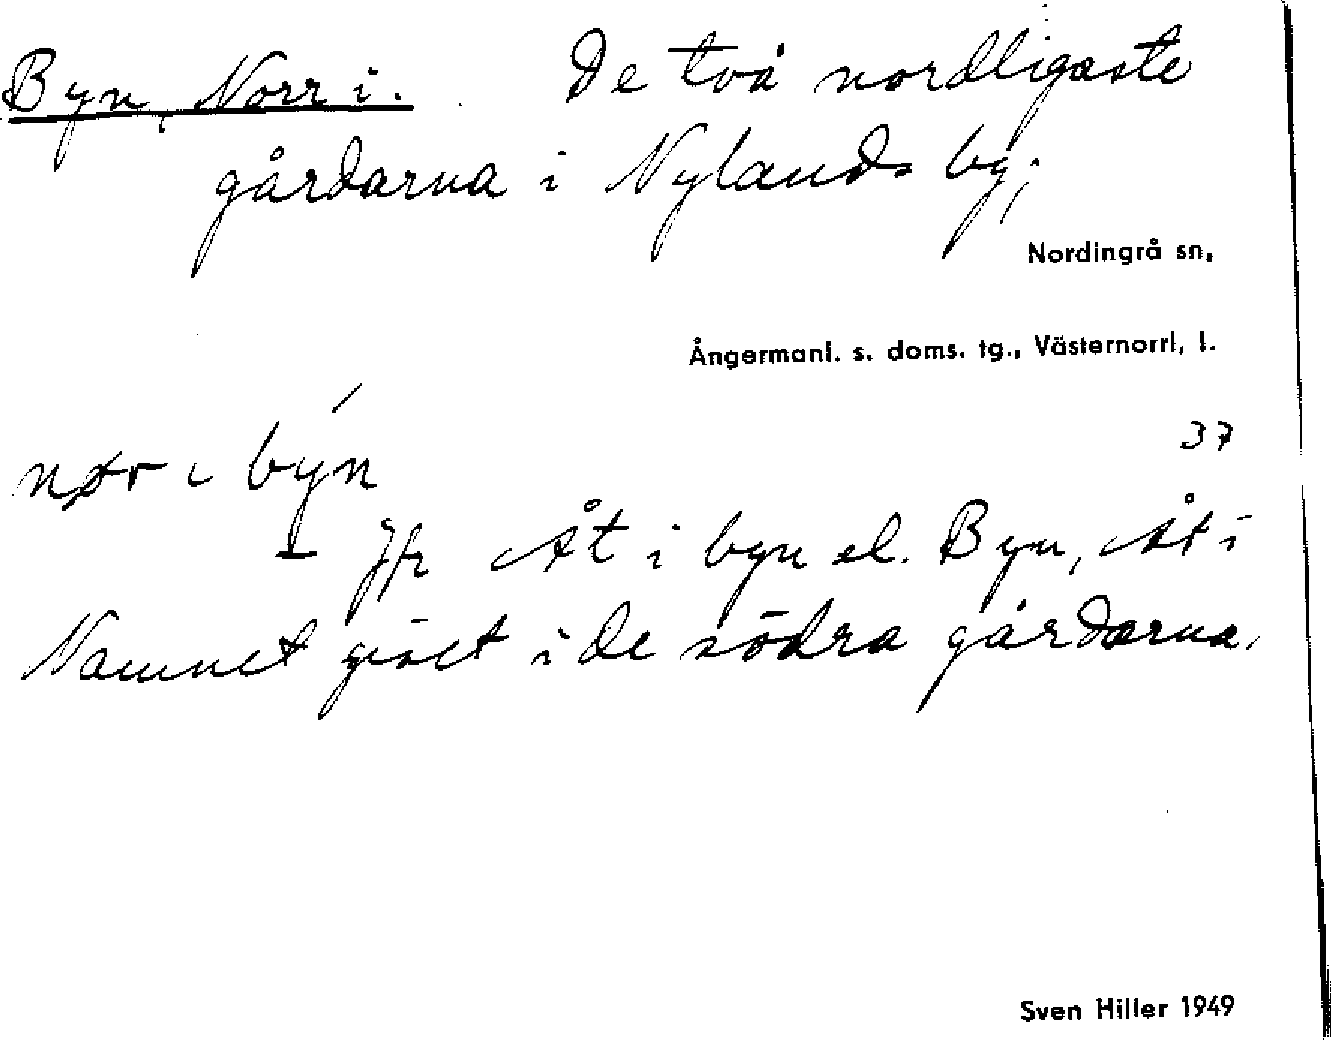 Byn, Norr i. De två nordligaste
gårdarna i Nylands by;
Nordingrå sn,
Ångermanl. s. doms. tg., Västernorrl, l.
nør i býn
37
– Jfr Åt i byn el. Byn, Åt i
Namnet givet i de södra gårdarna.
Sven Hiller 1949